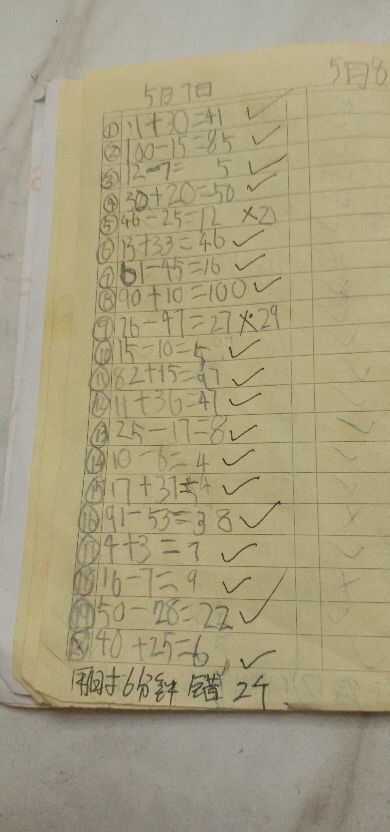 5月7日
5月8
① 11+30=41 ✓
② 100-15=85 ✓
③ 12-7= 5 ✓
④ 30+20=50 ✓
⑤ 46-25=12 ×21
⑥ 13+33=46 ✓
⑦ 61-45=16 ✓
⑧ 90+10=100 ✓
⑨ 76-47=27 ×29
⑩ 15-10=5 ✓
⑪ 82+15=97 ✓
⑫ 11+36=47 ✓
⑬ 25-17=8 ✓
⑭ 10-6=4 ✓
⑮ 17+37=54 ✓
⑯ 91-53=38 ✓
⑰ 4+3=7 ✓
⑱ 16-7=9 ✓
⑲ 50-28=22 ✓
40+25=6 ✓
用时6分钟 错 2个